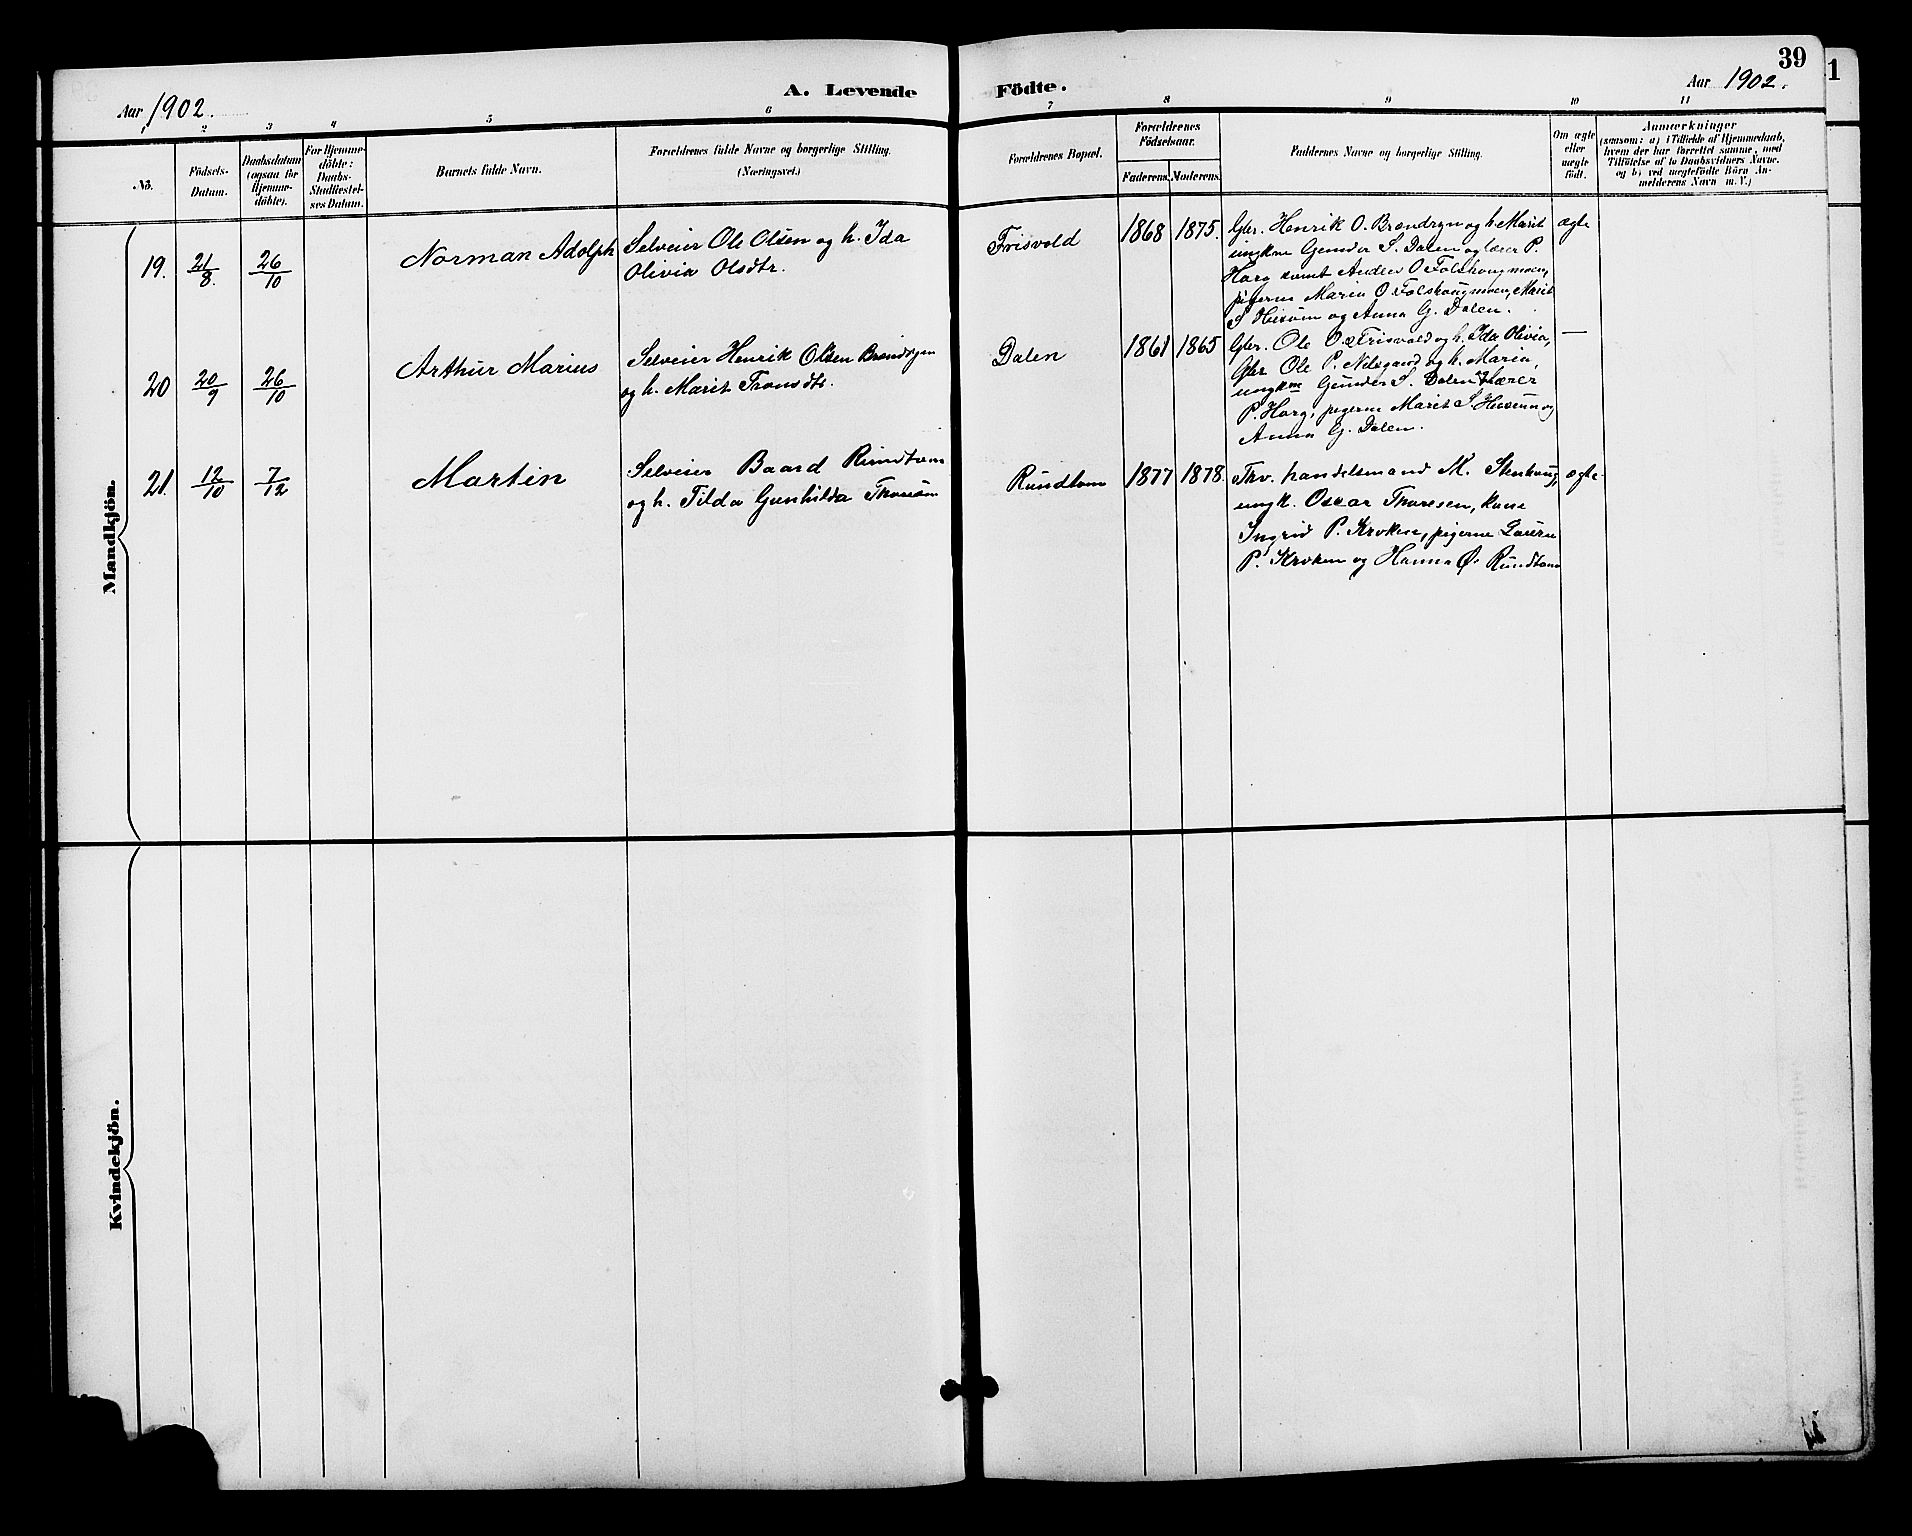 39
1
Aar 1902.
A. Levende Födte.
Aar 1902.
1 2 3 4 5 6 7 8 9 10 11
No.
Födsels-
Datum.
Daabsdatum
(ogsaa for
Hjemme-
döbte).
For Hjemme-
döbte:
Daabs-
Stadfæstel-
ses Datum.
Barnets fulde Navn.
Forældrenes fulde Navne og borgerlige Stilling.
(Næringsvei.)
Forældrenes Bopæl.
Forældrenes
Födselsaar.
Faderens. Moderens.
Faddernes Navne og borgerlige Stilling.
Om ægte
eller
uægte
födt.
Anmærkninger
(saasom: a) i Tilfælde af Hjemmedaab,
hvem der har forrettet samme, med
Tilföielse af to Daabsvidners Navne.
og b) ved uægtefödte Börn An-
melderens Navn m. V.)
Mandkjön.
19. 21/8. 26/10 Norman Adolph
Selveier Ole Olsen og h. Ida
Olivia Olsdtr.
Frisvold 1868 1875.
Gbr. Henrik O. Brandryn og h. Marit
ungkne Gunder S. Dalen og lærer P.
Harg samt Anders O Folskougmoen,
pigerne Maria O. Folskougmoen, Marit
S. Heisom og Anna G. Dalen.
ægte
20 20/9 26/10 Arthur Marius
Selveier Henrik Olsen Brandrgen
og h. Marit Tronsdtr.
Dalen 1861 1865
Gbr. Ole O. Frisvold og h. Ida Olivia,
Gbr Ole P. Nilsgaard og h. Maria,
ungkne Gunder S. Dalen og Lærer
P. Harg, pigerne Marit S. Heisum og
Anna G. Dalen.
—
21. 12/10 7/12 Martin
Selveier Baard Rundtom
og h. Tilda Gunhilda
Rundtom 1877 1878.
Fhv. handelsmand M. Stenhoug,
ungk. Oscar Thoresen, kone
Ingrid P. Kroken, pigerne
P. Kroken og Hanna Ø. Rundtom
ægte
Kvindekjön.